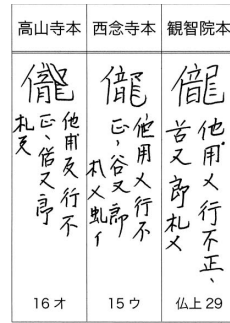 高山寺本
西念寺本
観智院本
儱
他用反行不
正、俗又郎
札反
儱
他用乂行不
正、谷又郎
札乂虬亻
儱
他用乂行不正、
苦又郎札乂
16オ
15ウ
仏上29